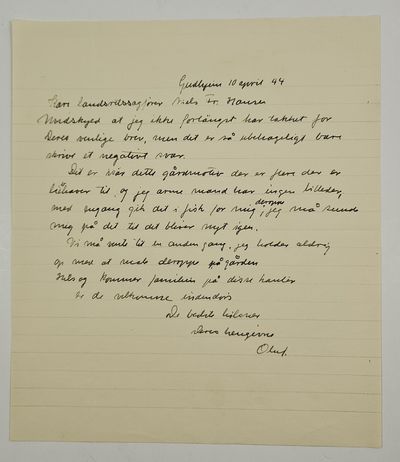 Gudhjem 10 april 44
Kære landsretssagfører Niels Fr. Hansen
Undskyld at jeg ikke forlængst har takket for
Deres venlige brev, men det er så ubehageligt bare
skrive et negativt svar.
Det er når dette gårdmotiv der er flere der er
til, og jeg arme mand har ingen billeder,
med engang gik det i fisk for mig deroppe, jeg må
mig på det til det bliver nyt igen.
Vi må vente til en anden gang. jeg holder aldrig
op med at male deroppe på gården
Hils og kommer familien på disse kanter
er de velkomne indendørs
De bedste hilsner
Deres hengivne
Oluf.